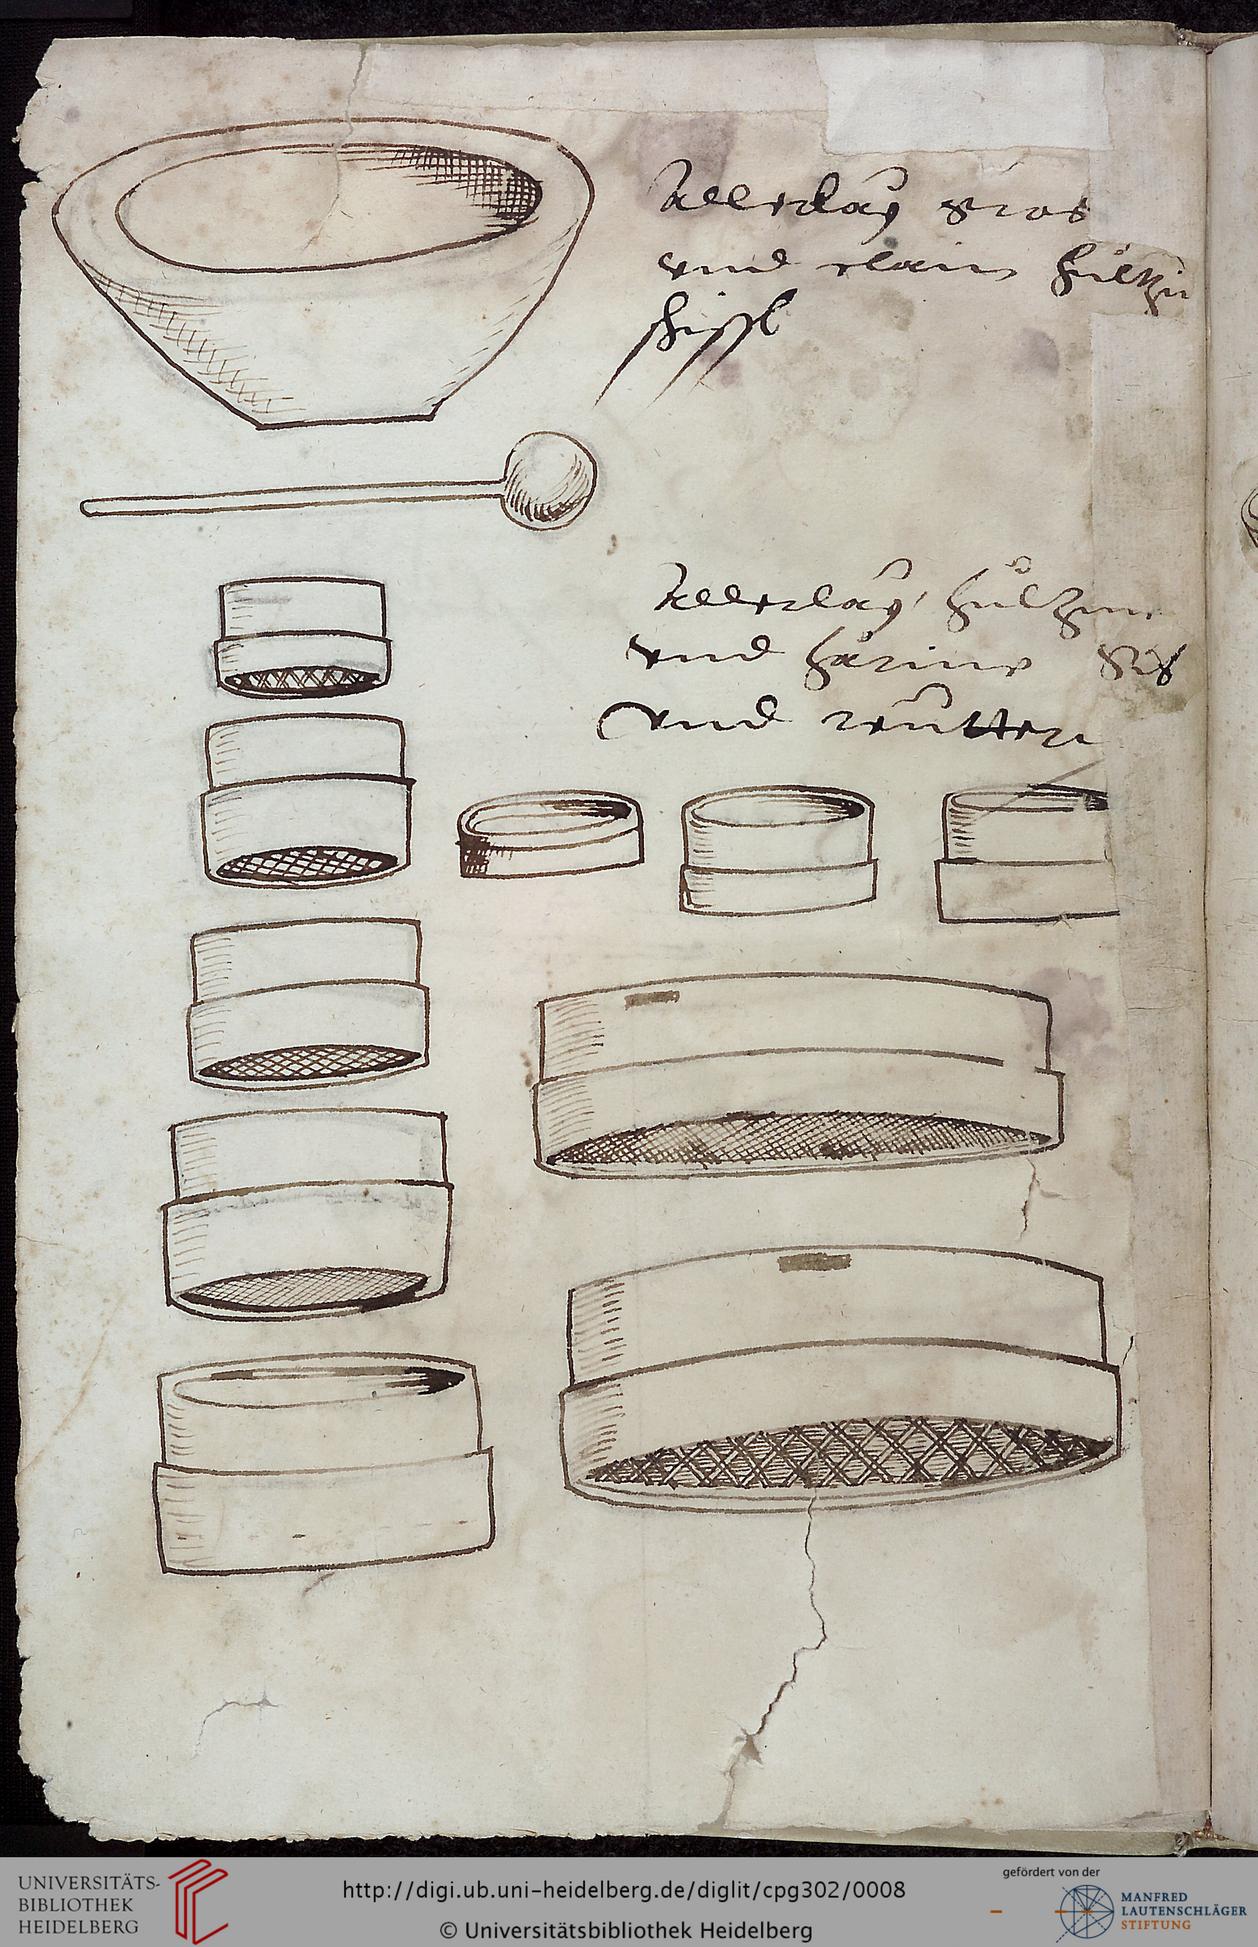 Allerlaÿ gros
vnd clain hültzin
schissl
Allerlaÿ hültzin
vnd härine Sib
vnd reütter
UNIVERSITÄTS-
BIBLIOTHEK
HEIDELBERG
http://digi.ub.uni-heidelberg.de/diglit/cpg302/0008
© Universitätsbibliothek Heidelberg
gefördert von der
MANFRED
LAUTENSCHLÄGER
STIFTUNG